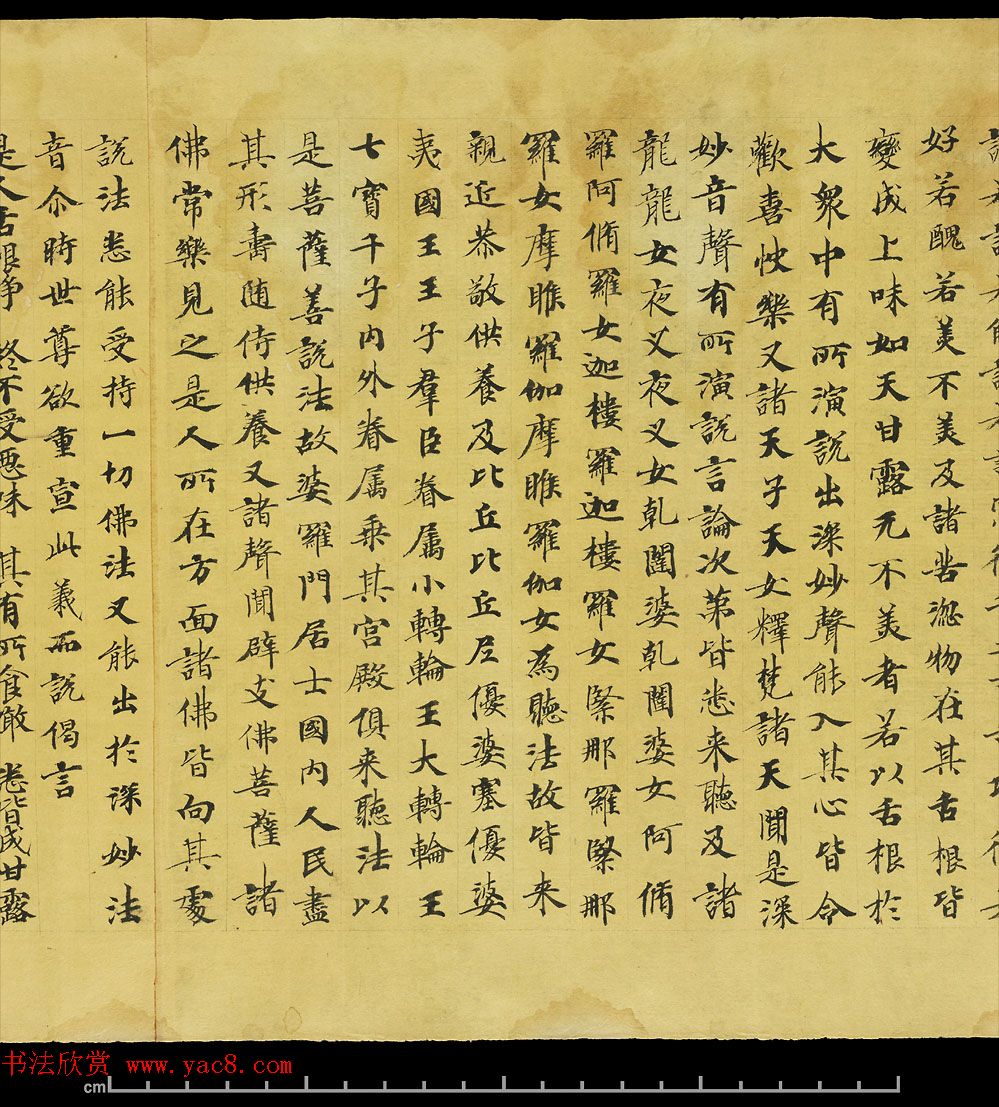 好若醜若美不美及諸苦澁物在其舌根皆
變成上味如天甘露无不美者若以舌根於
大衆中有所演說出深妙聲能入其心皆令
歡喜快樂又諸天子天女釋梵諸天聞是深
妙音聲有所演說言論次第皆悉来聽及諸
龍龍女夜叉夜叉女乹闥婆乹闥婆女阿脩
羅阿脩羅女迦樓羅迦樓羅女緊那羅緊那
羅女摩睺羅伽摩睺羅伽女為聽法故皆来
親近恭敬供養及比丘比丘尼優婆塞優婆
夷國王王子羣臣眷属小轉輪王大轉輪王
七寶千子内外眷属乗其宫殿俱来聽法以
是菩薩善說法故婆羅門居士國内人民盡
其形壽随侍供養又諸聲聞辟支佛菩薩諸
佛常樂見之是人所在方面諸佛皆向其處
說法悉能受持一切佛法又能出於深妙法
音尒時世尊欲重宣此義而說偈言
是人舌根淨 終不受惡味 其有所食噉 悉皆成甘露
书法欣赏 www.yac8.com
cm